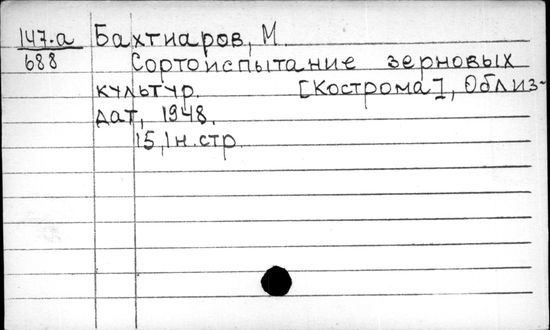 147.a Бахтиаров, М.
688 Сортоиспытание зерновых
культур. [Кострома], Облиз-
дат, 1948.
15, 1н. стр.